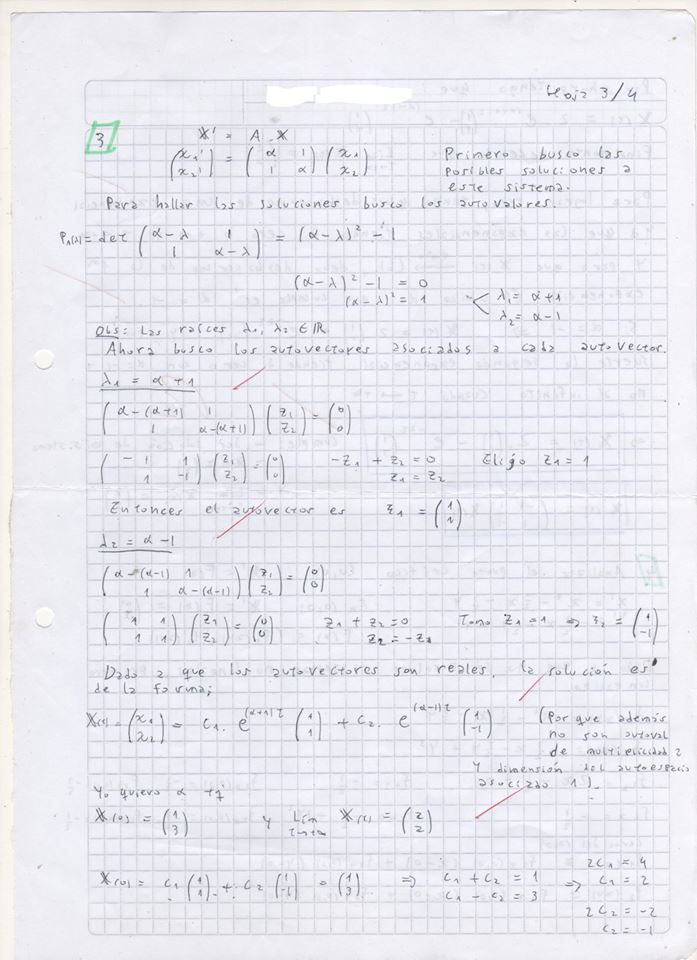 Hoja 3/4
3
X' = A . X
(x1' x2') = (α 1 1 α) (x1 x2)
Primero busco las
posibles soluciones a
este sistema.
Para hallar las soluciones busco los autovalores.
P_A(λ) = det (α-λ 1 1 α-λ) = (α-λ)² - 1
(α-λ)² - 1 = 0
(α-λ)² = 1
λ1 = α+1
λ2 = α-1
Obs: Las raíces λ1, λ2 ∈ ℝ
Ahora busco los autovectores asociados a cada autovector.
λ1 = α+1
(α-(α+1) 1 1 α-(α+1)) (z1 z2) = (0 0)
(-1 1 1 -1) (z1 z2) = (0 0) -z1 + z2 = 0 Elijo z1 = 1
z1 = z2
Entonces el autovector es ξ1 = (1 1)
λ2 = α-1
(α-(α-1) 1 1 α-(α-1)) (z1 z2) = (0 0)
(1 1 1 1) (z1 z2) = (0 0) z1 + z2 = 0 Tomo z1 = 1 ⇒ ξ2 = (1 -1)
z2 = -z1
Dado a que los autovectores son reales, la solución es
de la forma;
X(t) = (x1 x2) = C1. e^(α+1)t (1 1) + C2. e^(α-1)t (1 -1)
(Porque además
no son autoval
de multiplicidad 2
y dimensión del autoespacio
asociado 1).
Yo quiero α tq
X(0) = (1 3) y Lim t→+∞ X(t) = (2 2)
X(0) = C1 (1 1) + C2 (1 -1) = (1 3) ⇒ C1 + C2 = 1
C1 - C2 = 3
⇒ 2C1 = 4
C1 = 2
2C2 = -2
C2 = -1